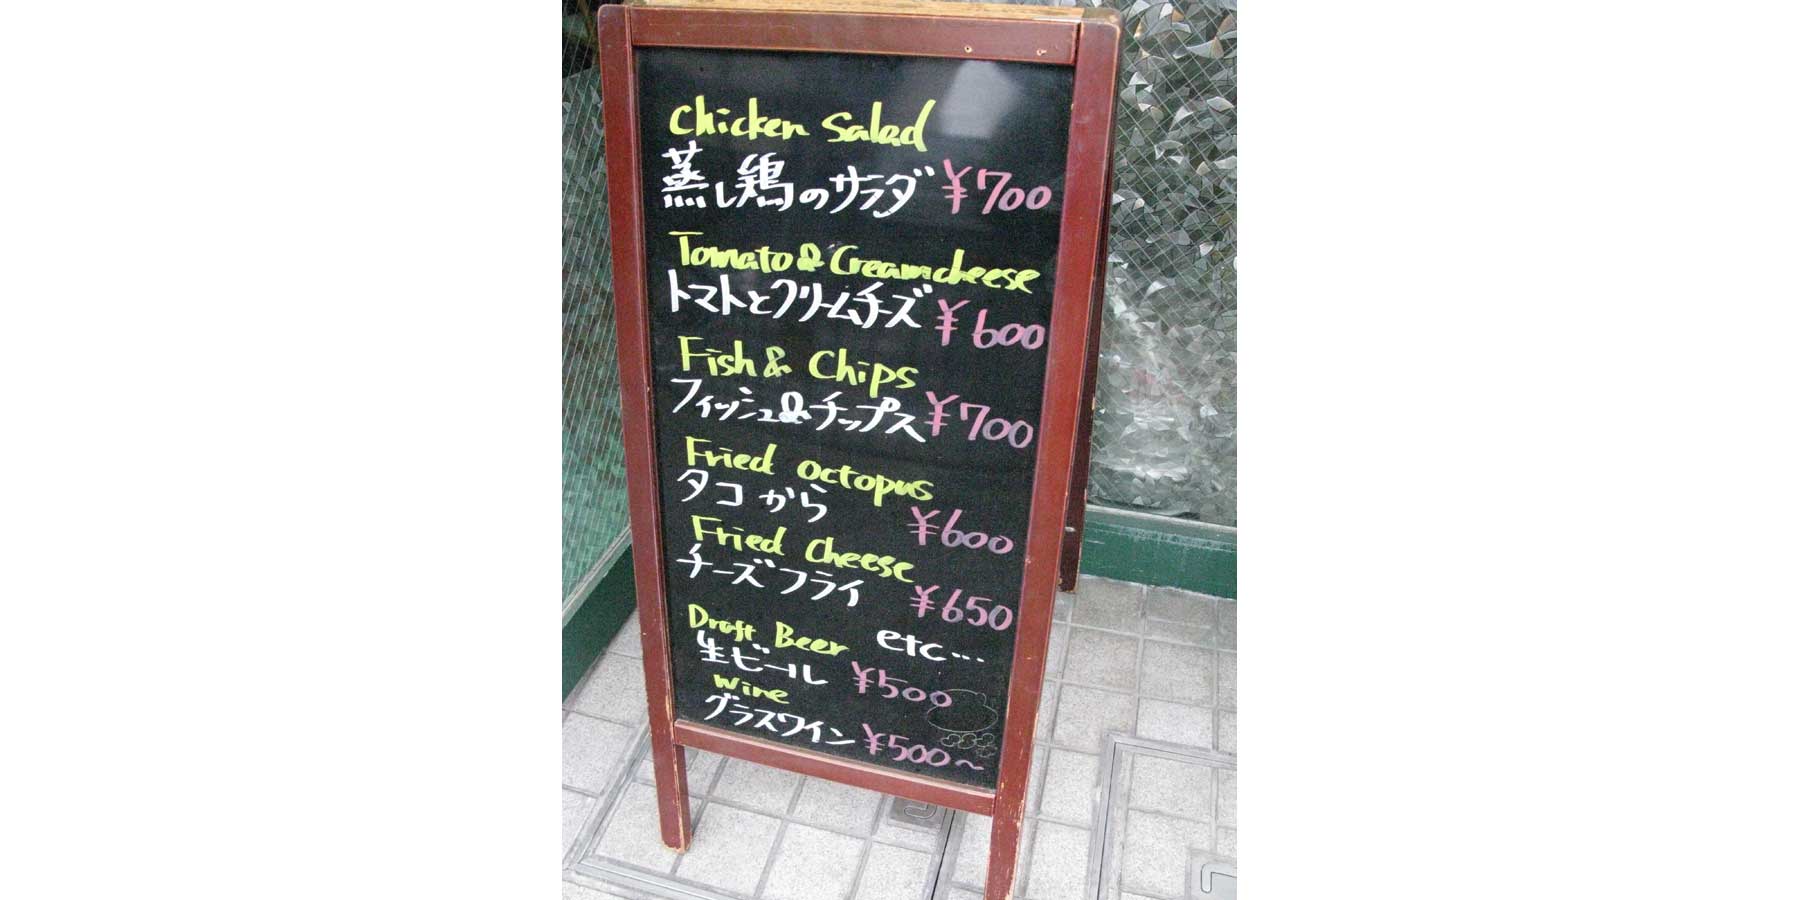 Chicken Salad
蒸し鶏のサラダ ¥700
Tomato & Creamcheese
トマトとクリームチーズ ¥600
Fish & Chips
フィッシュ&チップス ¥700
Fried Octopus
タコから ¥600
Fried Cheese
チーズフライ ¥650
Draft Beer etc...
生ビール ¥500
Wine
グラスワイン ¥500~